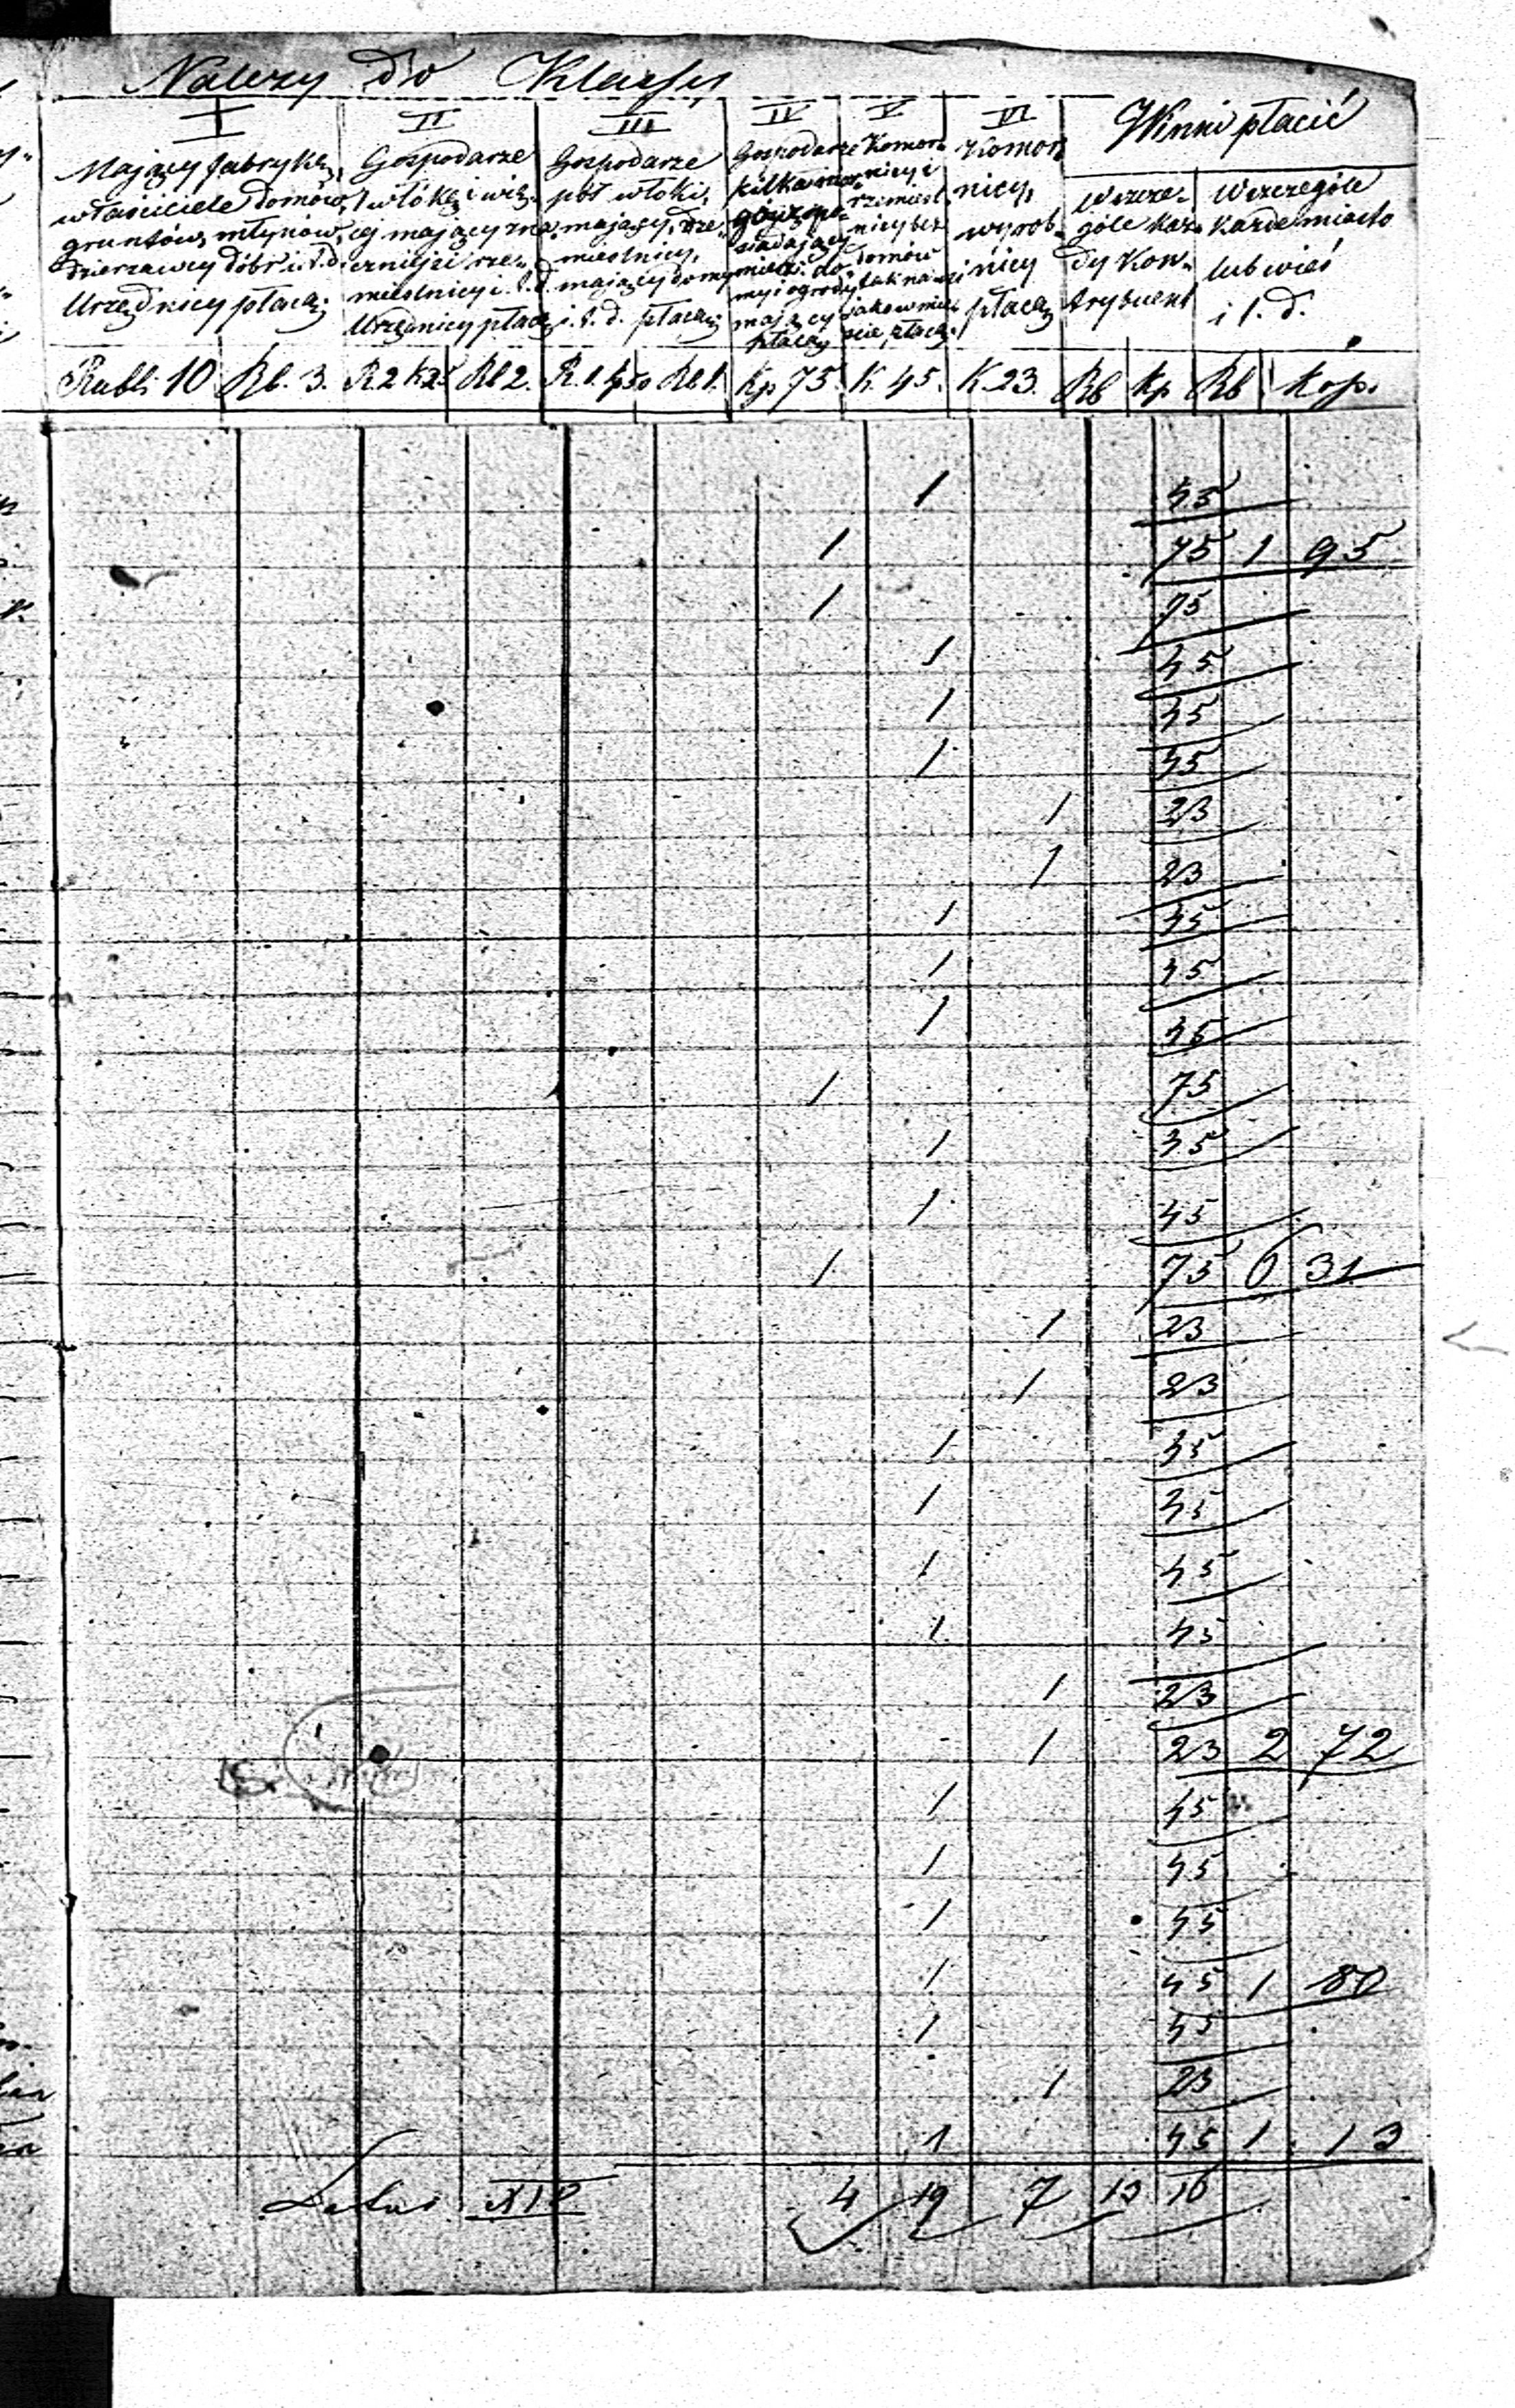 Należy do Klassy
I II III IV V VI Winni płacić
Mający fabrykę,
właściciele domów,
gruntów, młynów,
dzierżawcy dóbr i t. d.
Urzędnicy płacą:
Gospodarze
1 włókę i wię-
cej mający zna-
czniejsi rze-
mieślnicy i t. d.
Urzędnicy płacą
Gospodarze
pół włóki,
mający, rze-
mieślnicy,
mający domy
i. t. d. płacą:
Gospodarze
kilka mor-
gów po-
siadający
mieszk: do-
my i ogrody
mający
płacą
Komor-
nicy i
rzemieśl-
nicy bez
domów
tak na wsi
jako w mie-
ście płacą.
Komor-
nicy,
wyrob-
nicy
płacą
W szcze-
góle każ-
dy Kon-
trybuent
W szczególe
każde miasto
lub wieś
i t. d.
Rubli 10 Rb. 3. R 2 k 25 Rb 2. R. 1. kp 50 Rb 1. Kp 75. K. 45. K. 23. Rb Kp Rb Kop.
1 45
1 75 1 95
1 75
1 45
1 45
1 45
1 23
1 23
1 45
1 45
1 45
1 75
1 45
1 45
1 75 6 31
1 23
1 23
1 45
1 45
1 45
1 45
1 23
1 23 2 72
1 45
1 45
1 45
1 45 1 80
1 45
1 23
1 45 1 13
Latus 4 19 7 13 16